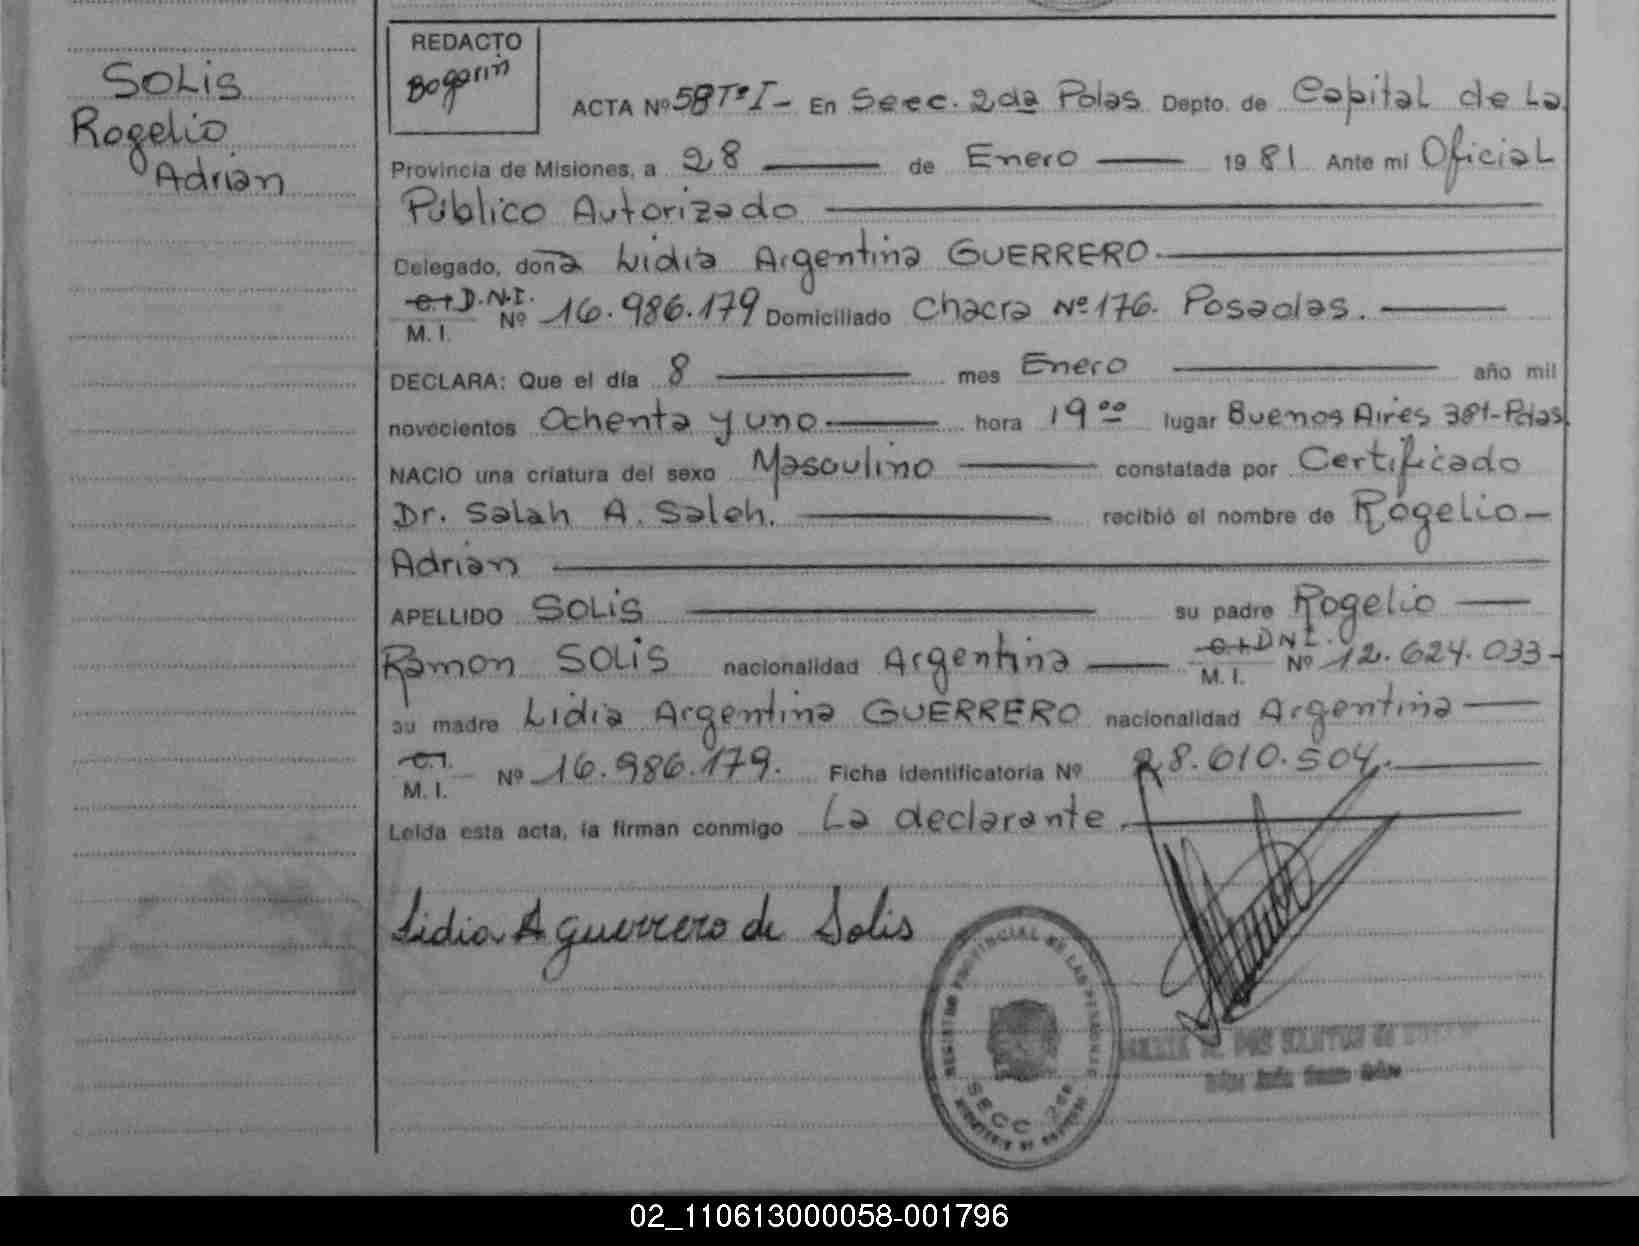 SOLIS
Rogelio
Adrián
REDACTO
Bogarin
ACTA Nº 58 Tº I - En Secc. 2da Pdas. Depto. de Capital de La
Provincia de Misiones, a 28 de Enero 1981 Ante mi Oficial
Público Autorizado
Delegado, doña Lidia Argentina GUERRERO
C.I. D.N.I.
M. I. Nº 16.986.179 Domiciliado Chacra Nº 176. Posadas.
DECLARA: Que el día 8 mes Enero año mil
novecientos Ochenta y uno hora 19 00 lugar Buenos Aires 381-Pdas
NACIO una criatura del sexo Masculino constatada por Certificado
Dr. Salah A. Saleh. recibió el nombre de Rogelio
Adrián
APELLIDO SOLIS su padre Rogelio
Ramón SOLIS nacionalidad Argentina C.I. D.N.I. M. I. Nº 12.624.033
su madre Lidia Argentina GUERRERO nacionalidad Argentina
C.I.
M. I. Nº 16.986.179. Ficha identificatoria Nº 28.610.504.
Leída esta acta, la firman conmigo La declarante.
Lidia A guerrero de Solis
REGISTRO PROVINCIAL DE LAS PERSONAS
SECC. 2da
02_110613000058-001796